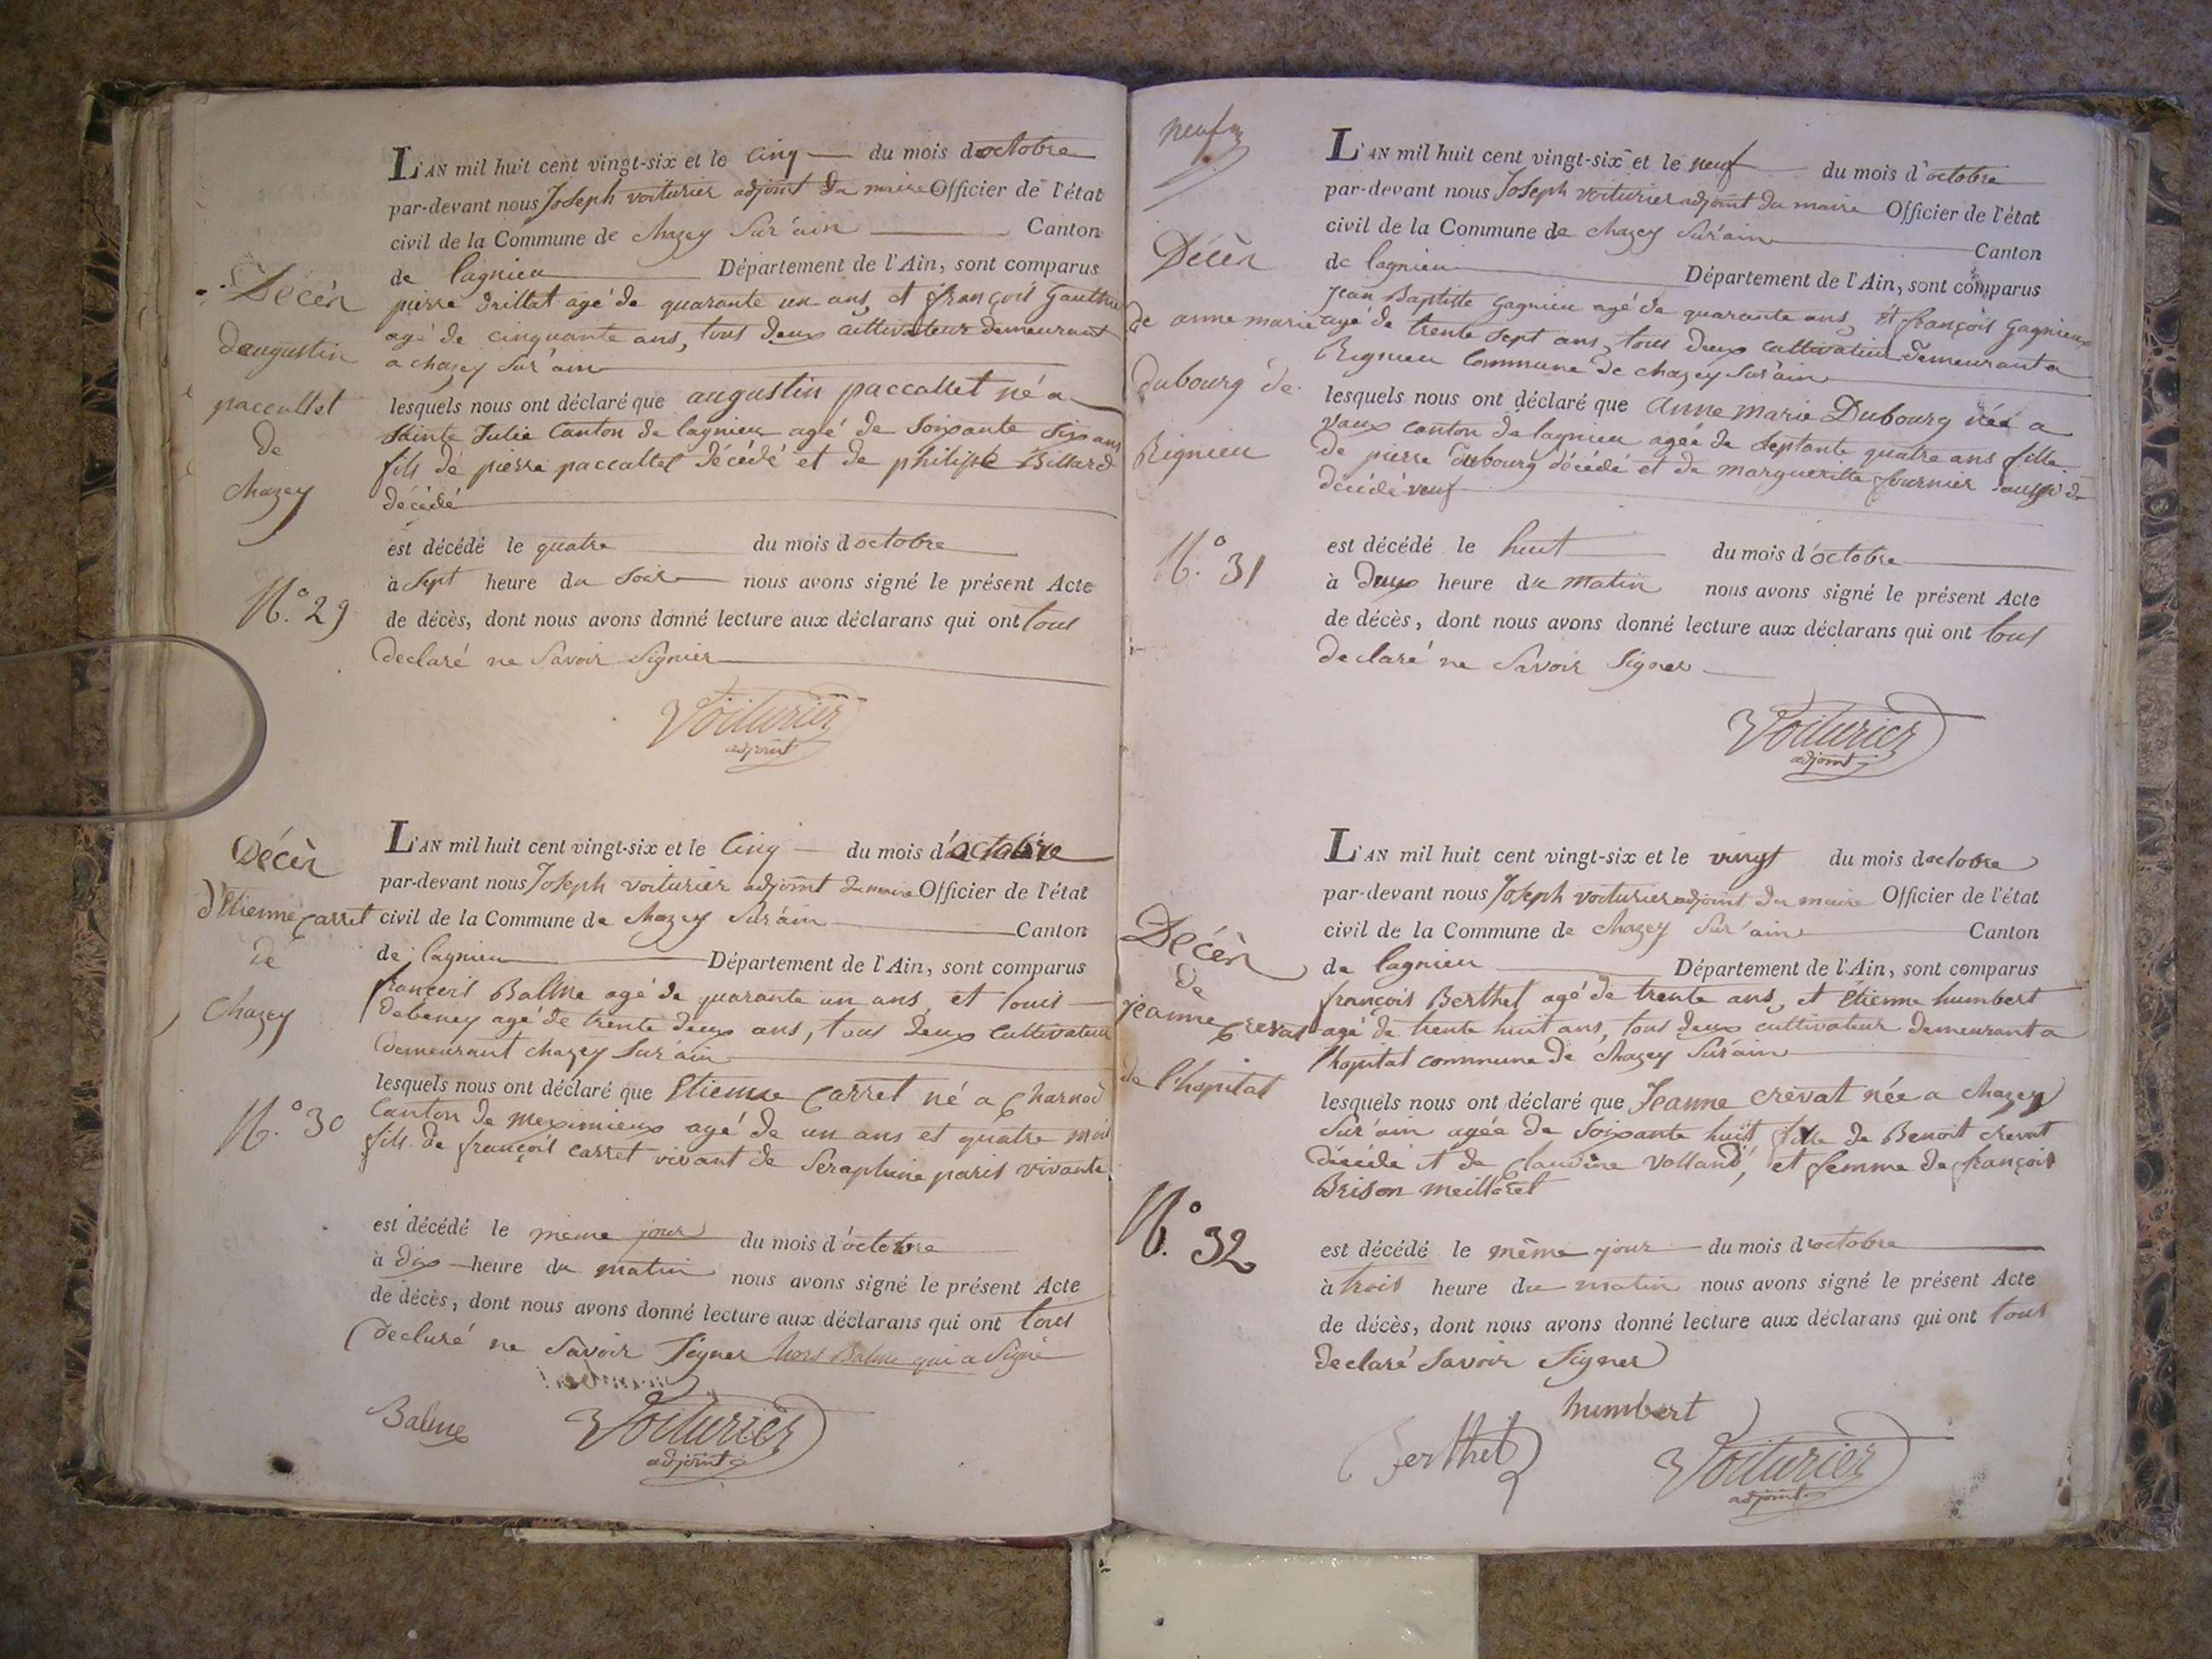 Décèn
daugustin
paccallet
de
chazey
N.° 29
L'AN mil huit cent vingt-six et le cinq du mois doctobre
par-devant nous Joseph voiturier adjoint du maire Officier de l'état
civil de la Commune de chazey Sur ain Canton
de lagnieu Département de l'Ain, sont comparus
pierre drillat agé de quarante un ans et françois Gauthier
agé de cinquante ans, tous deux cultivateur demeurant
a chazey Sur ain
lesquels nous ont déclaré que augustin paccallet né a
Sainte Julie Canton de lagnieu agé de Soixante Six ans
fils de pierre paccallet décédé et de philipe Billard
décédé
est décédé le quatre du mois doctobre
à Sept heure du Soir nous avons signé le présent Acte
de décès, dont nous avons donné lecture aux déclarans qui ont tous
declaré ne Savoir Signier
Voiturier
adjoint
Décèn
d'Etienne Carret
de
Chazey
N.° 30
L'AN mil huit cent vingt-six et le Cinq du mois d'octobre
par-devant nous Joseph voiturier adjoint du maire Officier de l'état
civil de la Commune de chazey Sur ain Canton
de lagnieu Département de l'Ain, sont comparus
françois Balme agé de quarante un ans, et louis
debeney agé de trente deux ans, tous deux Cultivateur
demeurant chazey Sur ain
lesquels nous ont déclaré que Etienne Carret né a Charnod
Canton de meximieux agé de un ans et quatre mois
fils de françois carret vivant de Seraphine paris vivante
est décédé le meme jour du mois d'octobre
à dix heure du matin nous avons signé le présent Acte
de décès, dont nous avons donné lecture aux déclarans qui ont tous
declaré ne Savoir Signer hors Balme qui a Signé
Balme
Voiturier
adjoint
neuf
Décèn
de anne marie
dubourg de
Rignieu
N.° 31
L'AN mil huit cent vingt-six et le neuf du mois d'octobre
par-devant nous Joseph voiturier adjoint du maire Officier de l'état
civil de la Commune de chazey Sur ain Canton
de lagnieu Département de l'Ain, sont comparus
Jean Baptiste gagnieu agé de quarante ans, et françois gagnieux
agé de trente sept ans, tous deux cultivateur demeurant a
Rignieu Commune de chazey Sur ain
lesquels nous ont déclaré que anne marie Dubourg née a
vaux canton de lagnieu agée de Septante quatre ans fille
de pierre dubourg décédé et de margueritte fournier aussi de
décédé veuf
est décédé le huit du mois d'octobre
à deux heure du matin nous avons signé le présent Acte
de décès, dont nous avons donné lecture aux déclarans qui ont tous
declaré ne Savoir Signer
Voiturier
adjoint
Décèn
de
jeanne Crevat
de l'hopital
N.° 32
L'AN mil huit cent vingt-six et le vingt du mois doctobre
par-devant nous Joseph voiturier adjoint du maire Officier de l'état
civil de la Commune de Chazey Sur ain Canton
de lagnieu Département de l'Ain, sont comparus
françois Berthet agé de trente ans, et Etienne humbert
agé de trente huit ans, tous deux cultivateur demeurant a
l'hopital commune de Chazey Sur ain
lesquels nous ont déclaré que Jeanne crevat née a chazey
Sur ain agée de Soixante huit fille de Benoit crevat
décédé et de Claudine volland, et femme de françois
Brison meilloret
est décédé le même jour du mois d'octobre
à trois heure du matin nous avons signé le présent Acte
de décès, dont nous avons donné lecture aux déclarans qui ont tous
declaré Savoir Signer
humbert
Berthet
Voiturier
adjoint